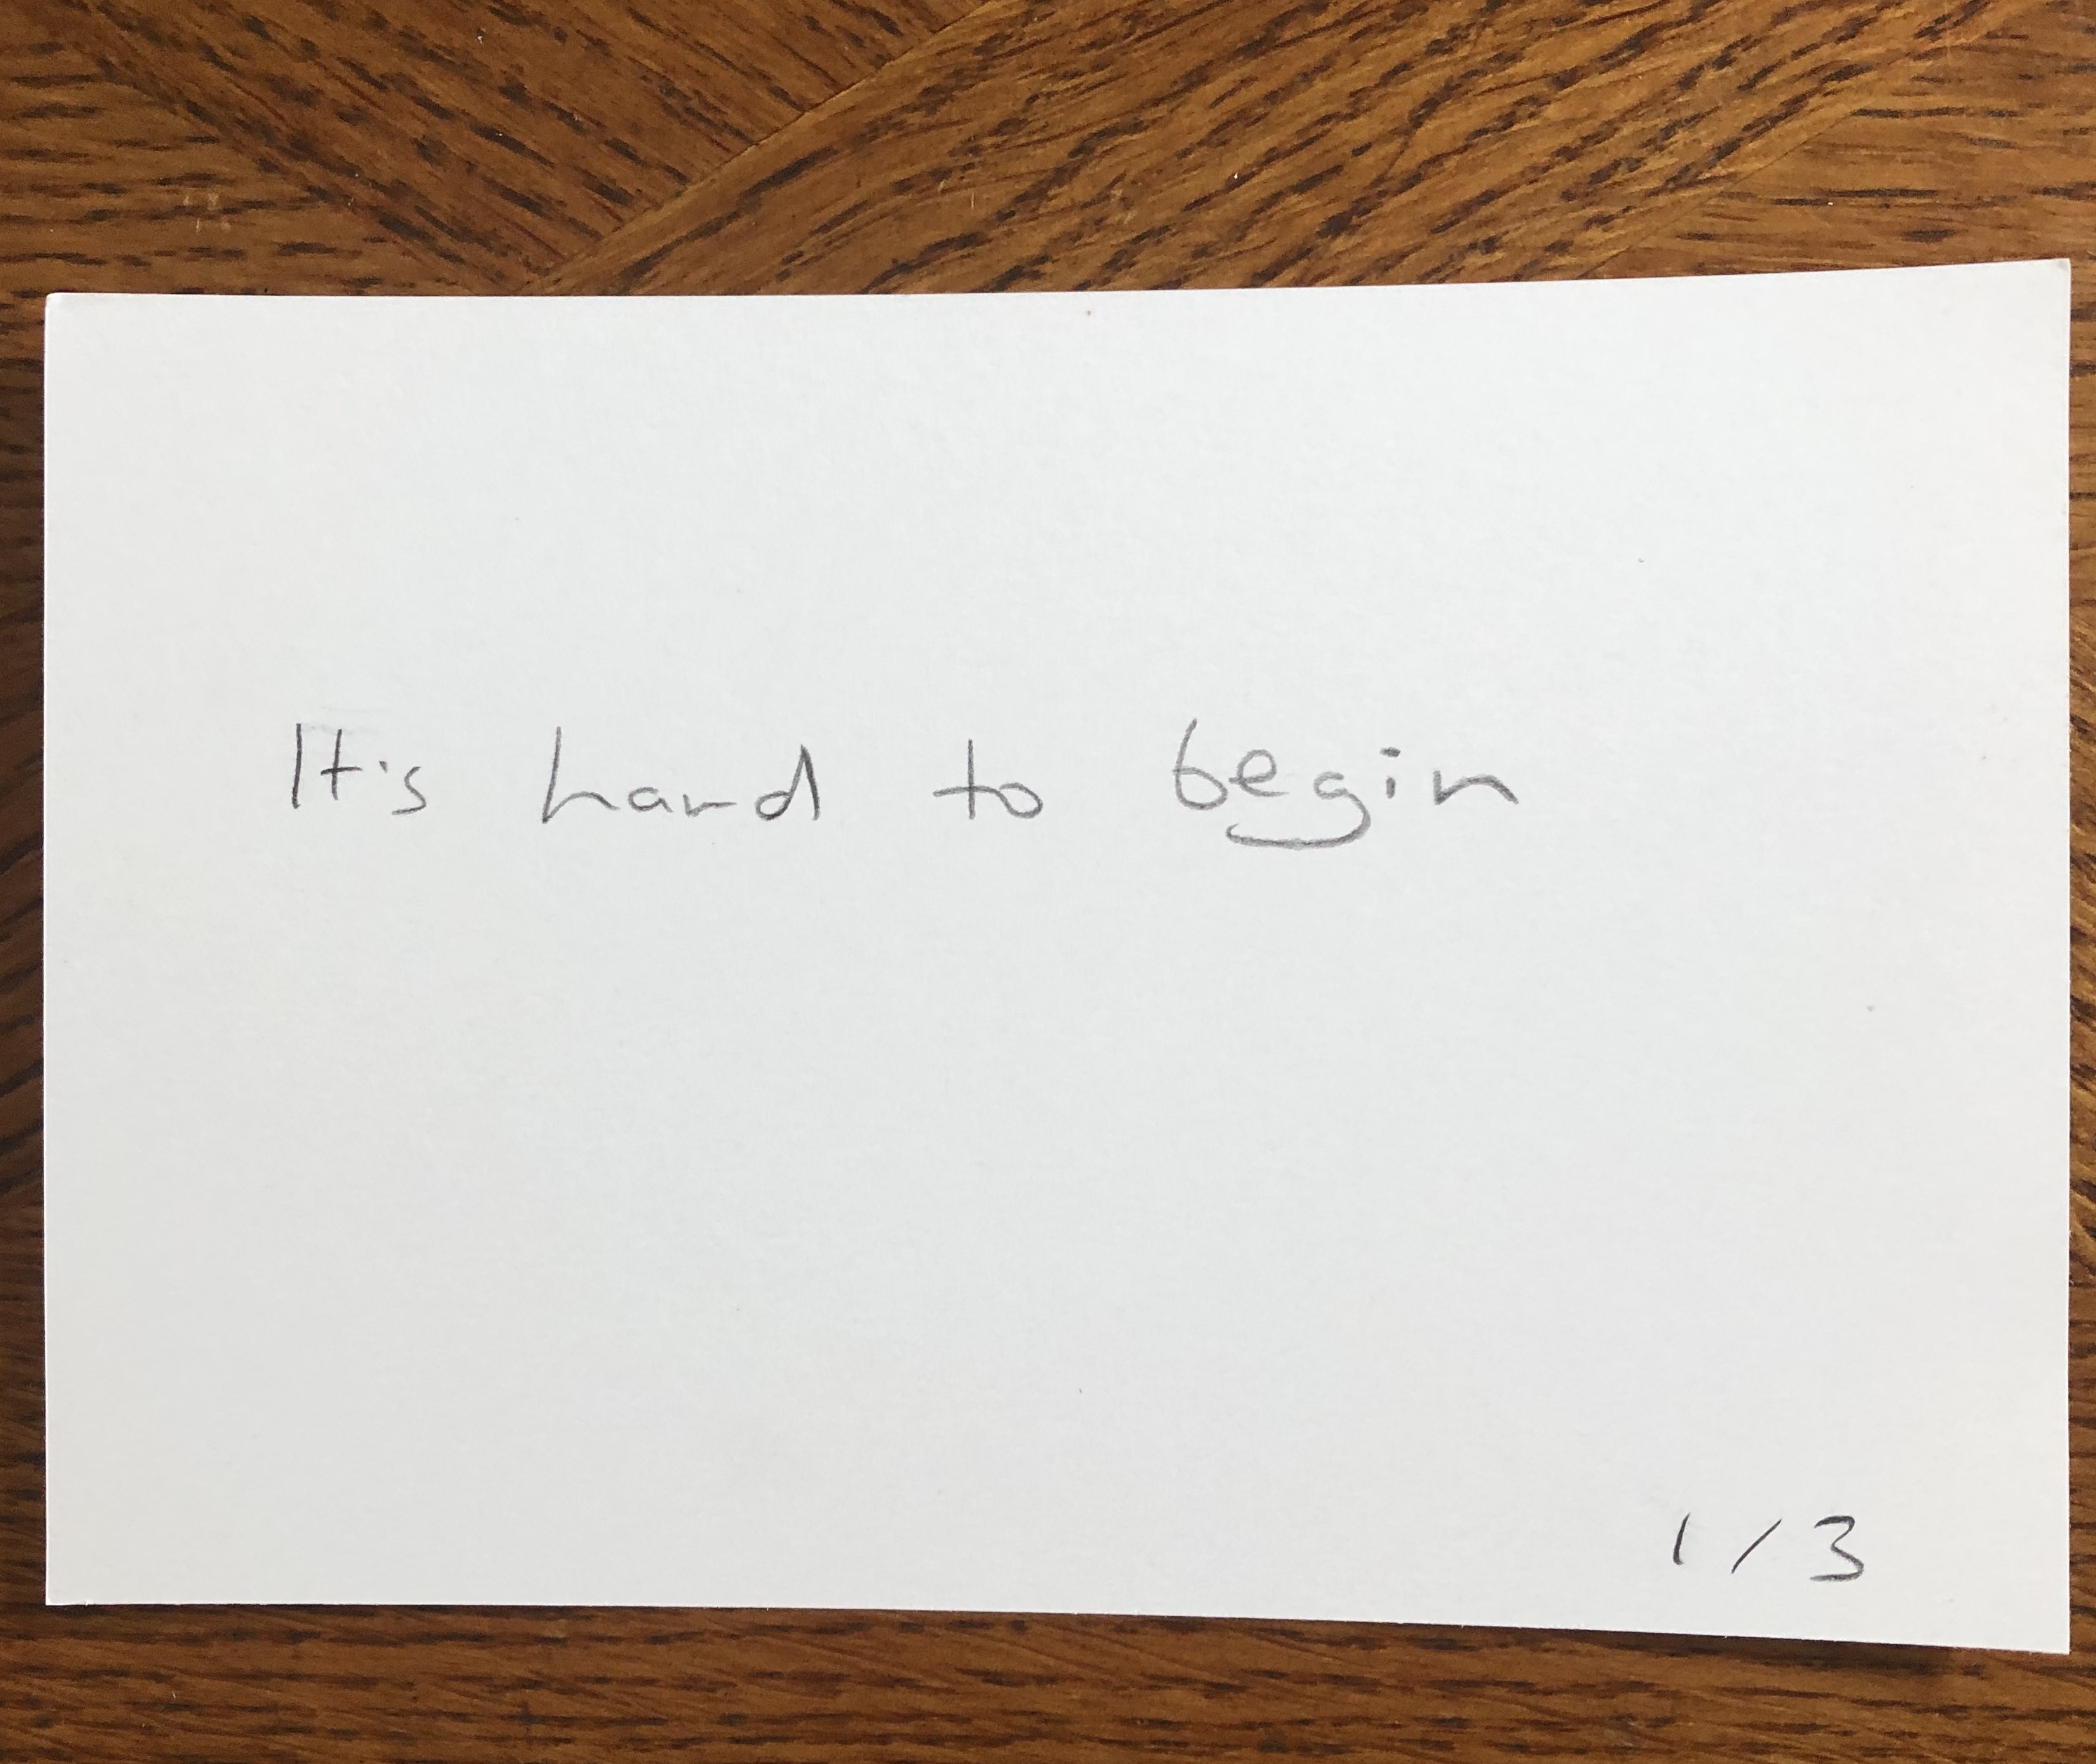 It's hard to begin
1/3